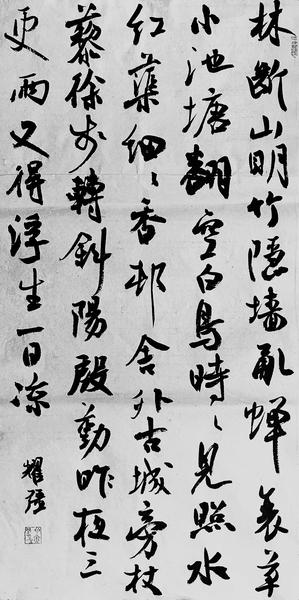 林斷山明竹隱墻亂蟬衰草
小池塘翻空白鳥時〻見照水
紅蕖細〻香邨舍外古城旁杖
藜徐步轉斜陽殷勤昨夜三
更雨又得浮生一日涼
耀